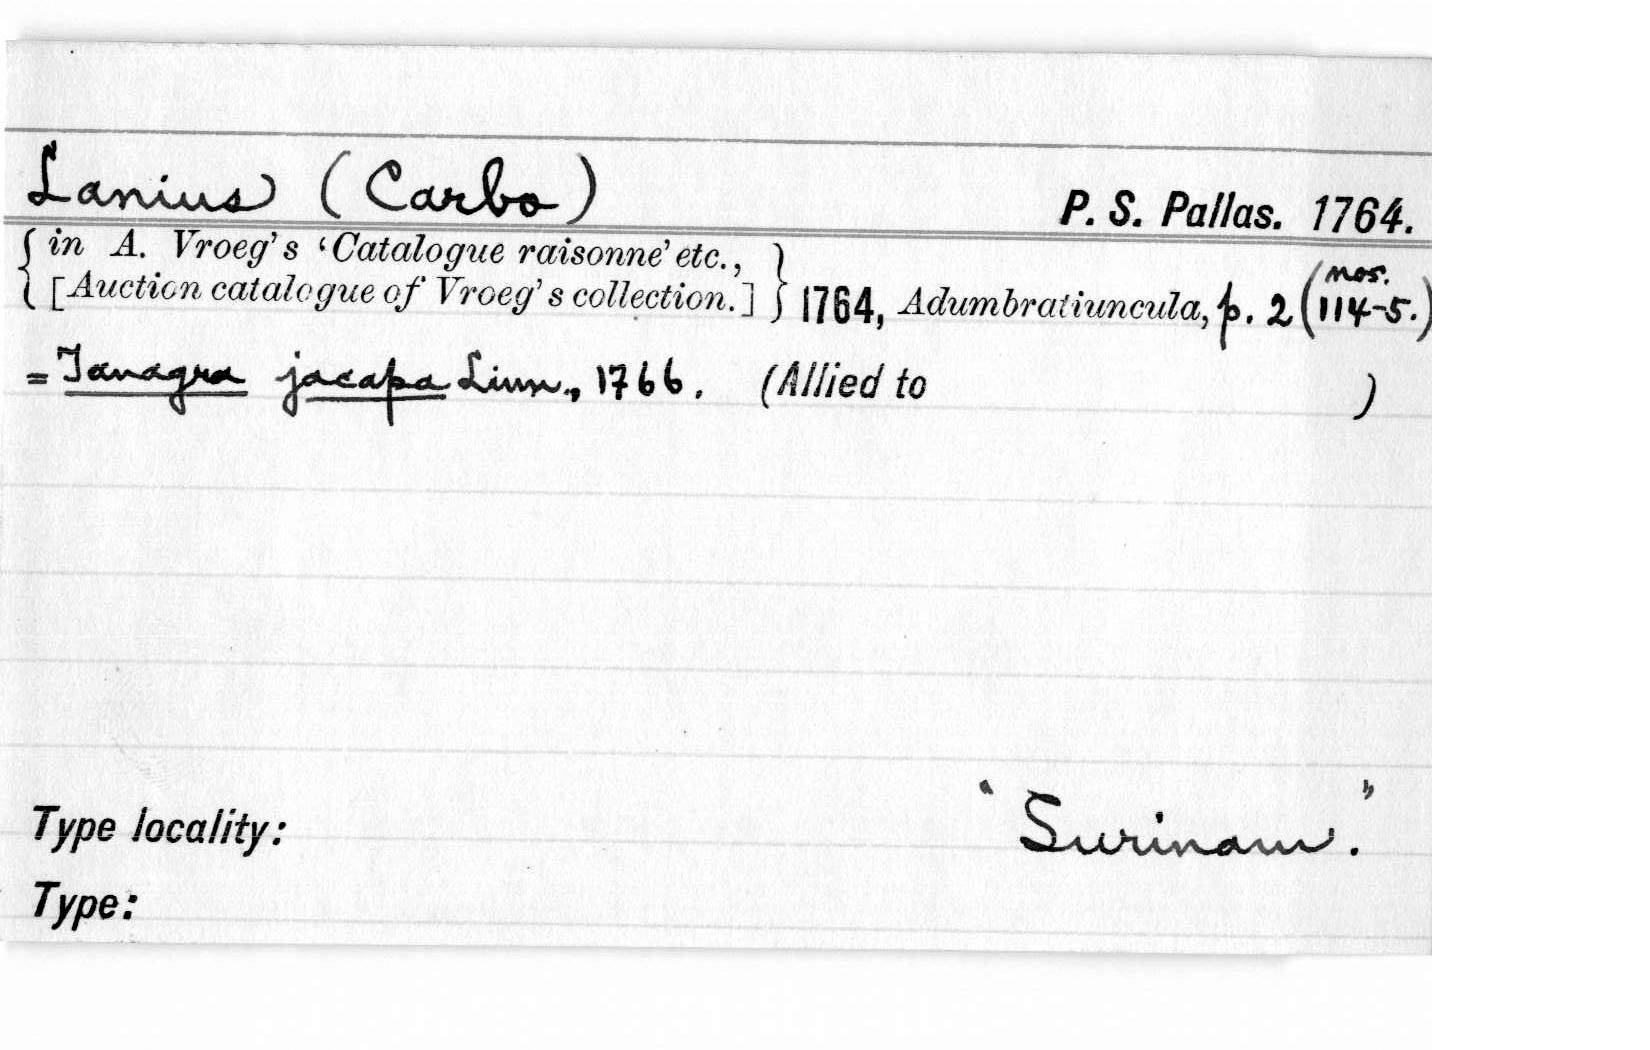 Lanius (Carbo) P. S. Pallas. 1764.
{ in A. Vroeg's 'Catalogue raisonne' etc., }
{ [Auction catalogue of Vroeg's collection.] } 1764, Adumbratiuncula, p. 2 (nos. 114-5.)
= Tanagra jacapa Linn., 1766. (Allied to )
Type locality: "Surinam."
Type: